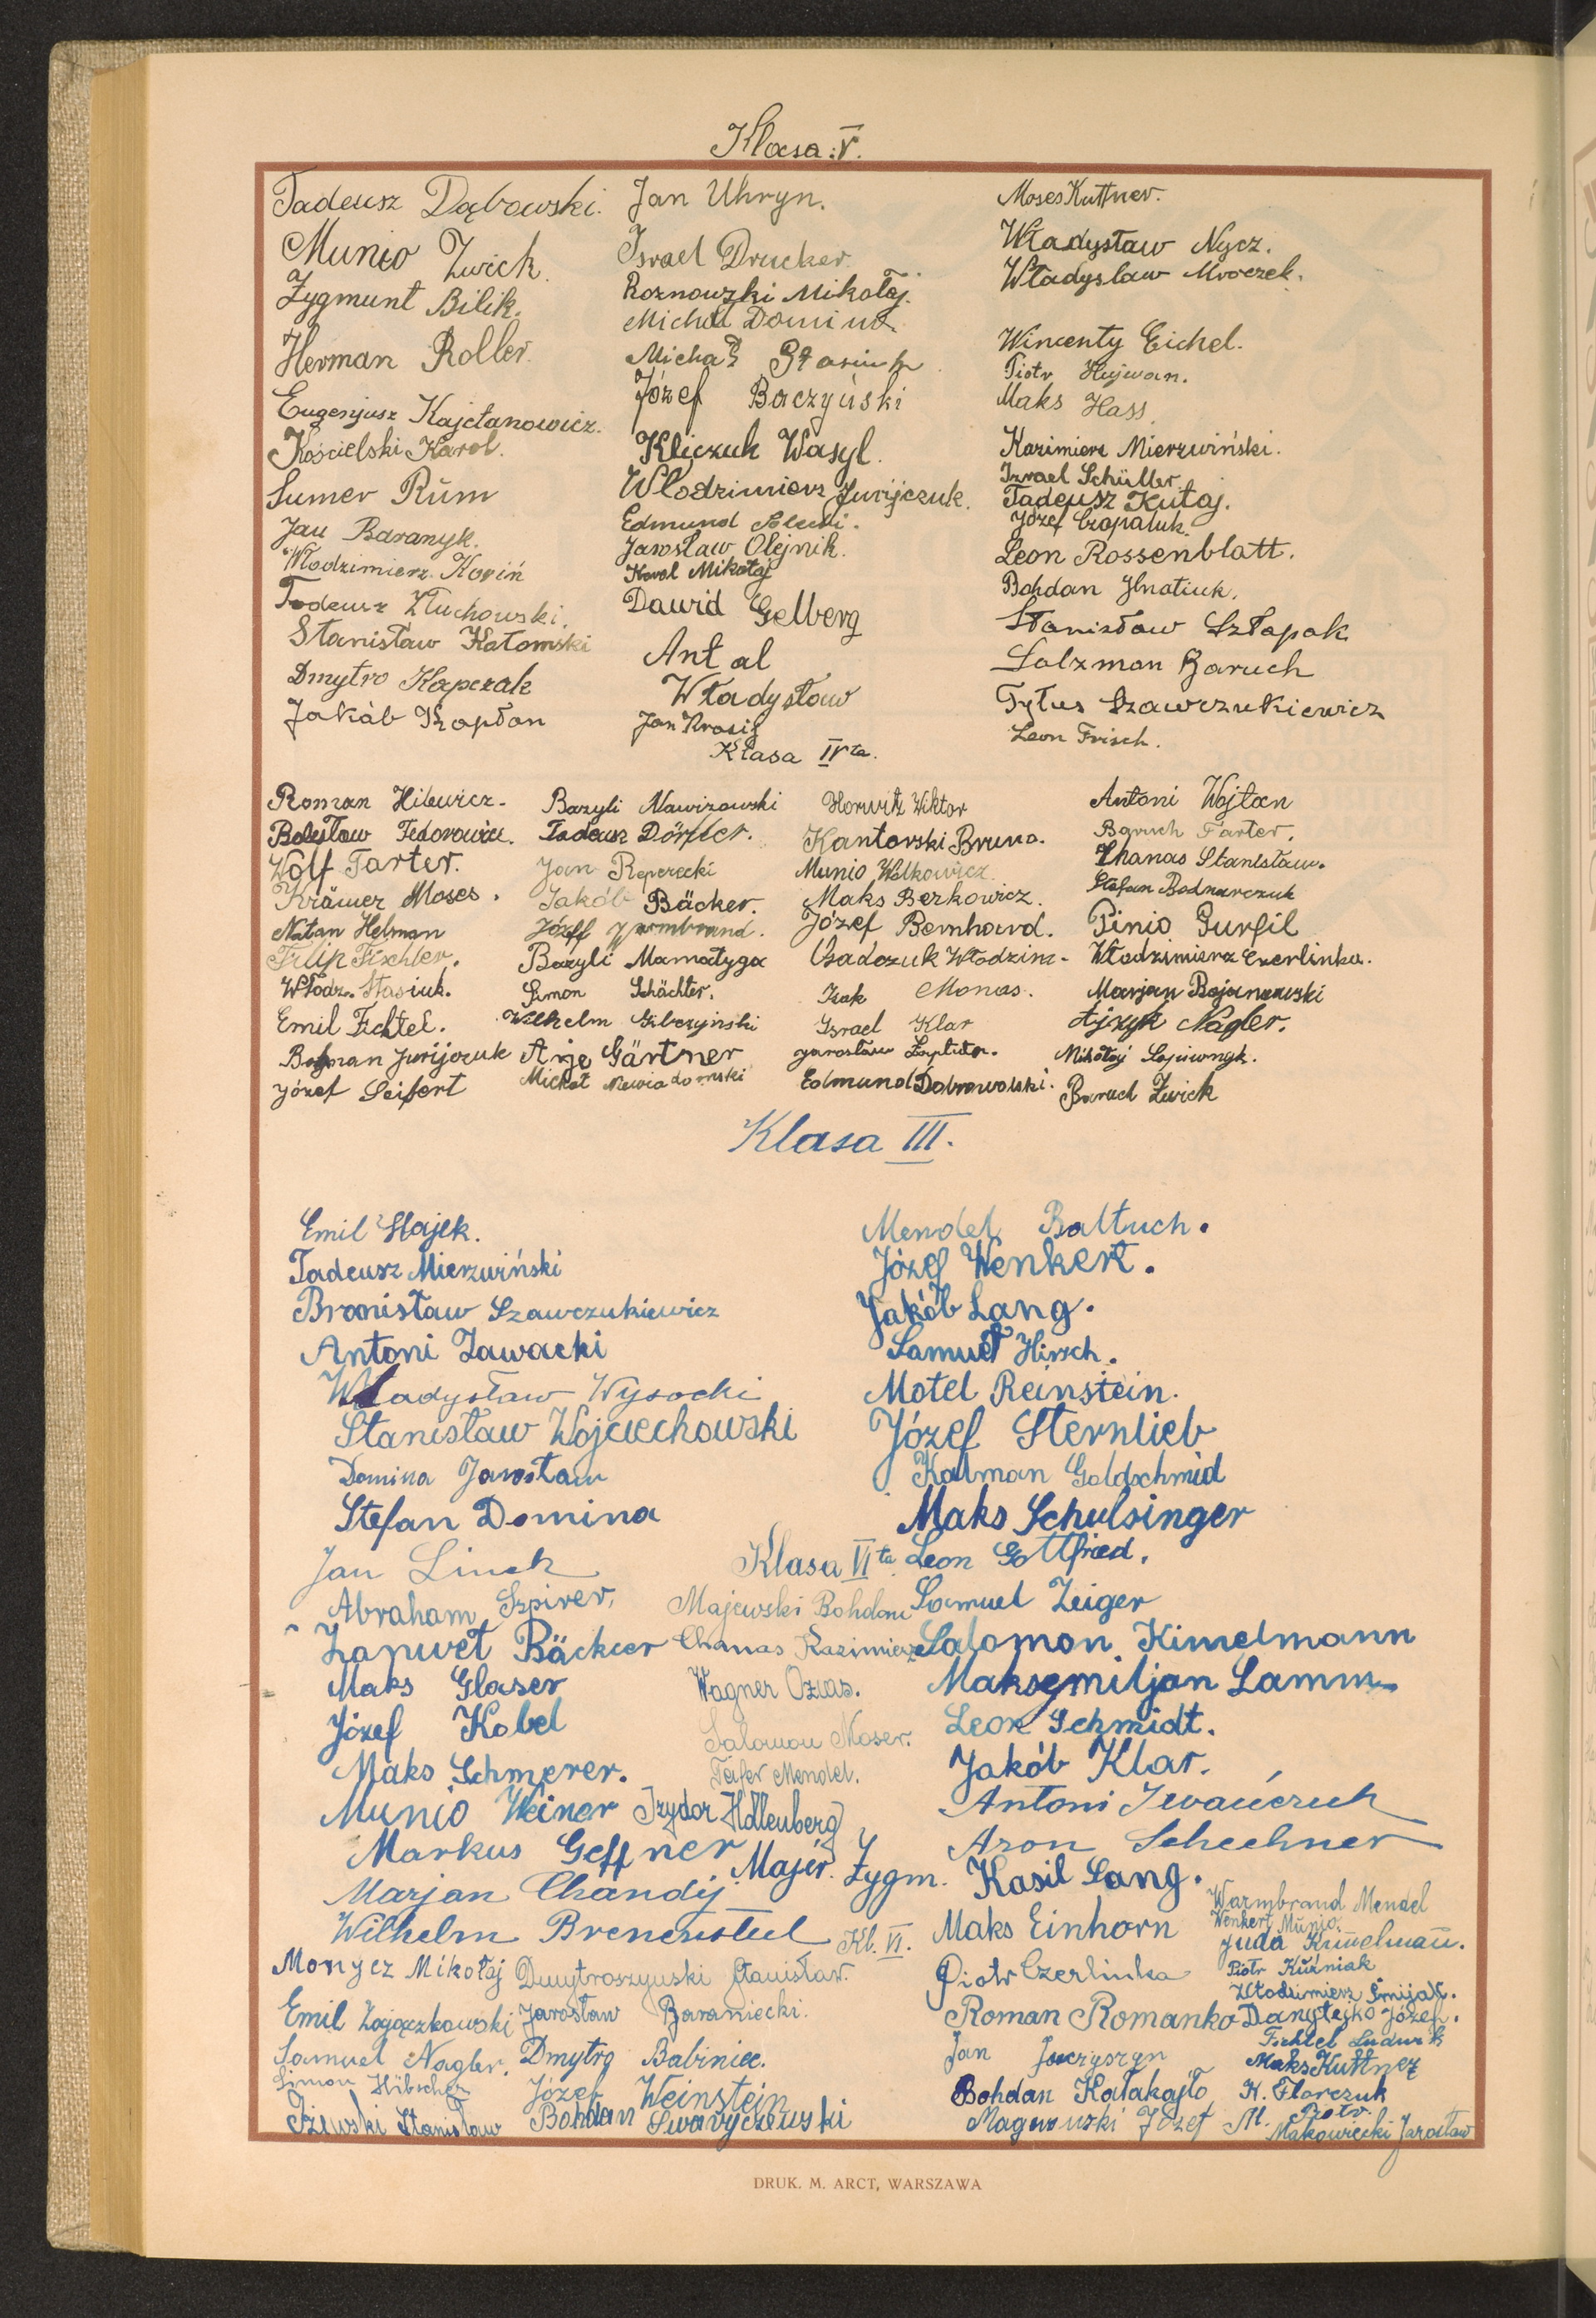 Klasa: V.
Tadeusz Dąbowski.
Munio Zwick.
Zygmunt Bilik.
Herman Roller.
Eugenjusz Kajetanowicz.
Kościelski Karol.
Sumer Rům
Jan Baranyk.
Włodzimierz Koriń
Tadeusz Złuchowski.
Stanisław Hołomski
Dmytro Kapczak
Jakób Kapłan
Jan Uhryn.
Israel Drucker.
Roznowski Mikołaj.
Michał
Michał Stasiuk
Józef Baczyński
Kliczuk Wasyl.
Włodzimierz Jurijczuk.
Edmund
Jarosław Olejnik.
Karol Mikołaj
Dawid Gelberg
Antal
Władysław
Jan Krosig
Moses Kuttner.
Władysław Nycz.
Władysław Mroczek.
Wincenty Eichel.
Piotr Hujwan.
Maks Hass.
Kazimierz Mierzwiński.
Izrael Schüller.
Tadeusz Kutaj.
Józef Czopaluk.
Leon Rossenblatt.
Bohdan Hnatiuk.
Stanisław Szłapak
Salzman Baruch
Tytus Szawczukiewicz
Leon Frisch.
Klasa IVta.
Roman Hilewicz.
Bolesław Fedorowicz.
Wolf Tarter.
Krämer Moses.
Natan Helman
Filip Fischler.
Włodz. Stasiuk.
Emil Fichtel.
Roman Jurijczuk
Józef Seifert
Bazyli Nawizowski
Tadeusz Dörfler.
Jan Reperecki
Jakób Bäcker.
Józef Jarmbrand.
Bazyli Mamałyga
Simon Schächter.
Wilhelm Gilczyński
Arje Gärtner
Michał Niewiadomski
Horwitz Wiktor
Kantorski Bruno.
Munio Wolkowicz
Maks Berkowicz.
Józef Bernhard.
Gadczuk Włodzim.
Izak Monas.
Israel Klar
Jarosław Łaptuta.
Edmund Dobrowolski.
Antoni Wojtan
Baruch Tarter.
Chanas Stanisław.
Stefan Bodnarczuk
Pinio Gurfil
Włodzimierz Czerlinka.
Marjan Bojanowski
Ajzyk Nagler.
Mikołaj
Baruch Zwick
Klasa III.
Emil Hajek.
Tadeusz Mierzwiński
Bronisław Szawczukiewicz
Antoni Zawacki
Władysław Wysocki
Stanisław Wojciechowski
Domina Jarosław
Stefan Domina
Jan Linek
Abraham Szpirer.
Zanwet Bäcker
Maks Glaser
Józef Kobel
Maks Schmerer.
Munio Weiner
Markus Geffner
Marjan Chandij
Wilhelm Brenenstul
Mendel Baltuch.
Józef Wenkert.
Jakób Lang.
Samuel Hirsch.
Motel Reinstein.
Józef Sternlieb
Kalman Goldschmid
Maks Schulsinger
Leon Gottfried.
Samuel Zeiger
Salomon Kimelmann
Maksymiljan Lamm
Leon Schmidt.
Jakób Klar.
Antoni Iwańczuk
Aron Schechner
Kasil Lang.
Maks Einhorn
Klasa VIta
Majewski Bohdan
Chanas Kazimierz
Wagner Ozias.
Salomon Moser.
Tafer Mendel.
Izydor Hallenberg
Majer. Zygm.
Kl. VI.
Monycz Mikołaj
Emil Zajączkowski
Samuel Nagler.
Simon Hübscher
Iżewski Stanisław
Dmytroszyński Stanisław.
Jarosław Baraniecki.
Dmytro Babiniec.
Józef Weinstein
Bohdan Swaryczewski
Piotr Czerlinka
Roman Romanko
Jan Juczyszyn
Bohdan Kałakajło
Magurzski Józef M.
Warmbrand Mendel
Wenkert Munio.
Juda Kimelman.
Piotr Kuźniak
Włodzimierz Śmijak.
Danyłejko Józef.
Fichtel Ludwik
Maks Kuttner
K. Florczuk
Piotr.
Makowiecki Jarosław
DRUK. M. ARCT, WARSZAWA